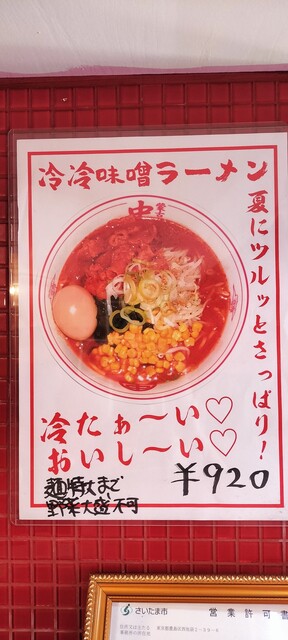 冷冷味噌ラーメン
夏にツルッとさっぱり!
冷たぁ〜い♡
おいし〜い♡
¥920
麺特大まで
野菜大盛不可
さいたま市
営業許可書